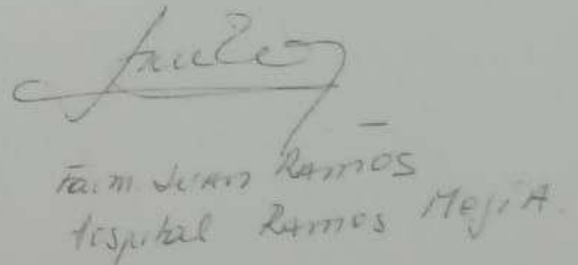 Farm. Juan RAMOS
Hospital RAMOS MejíA.